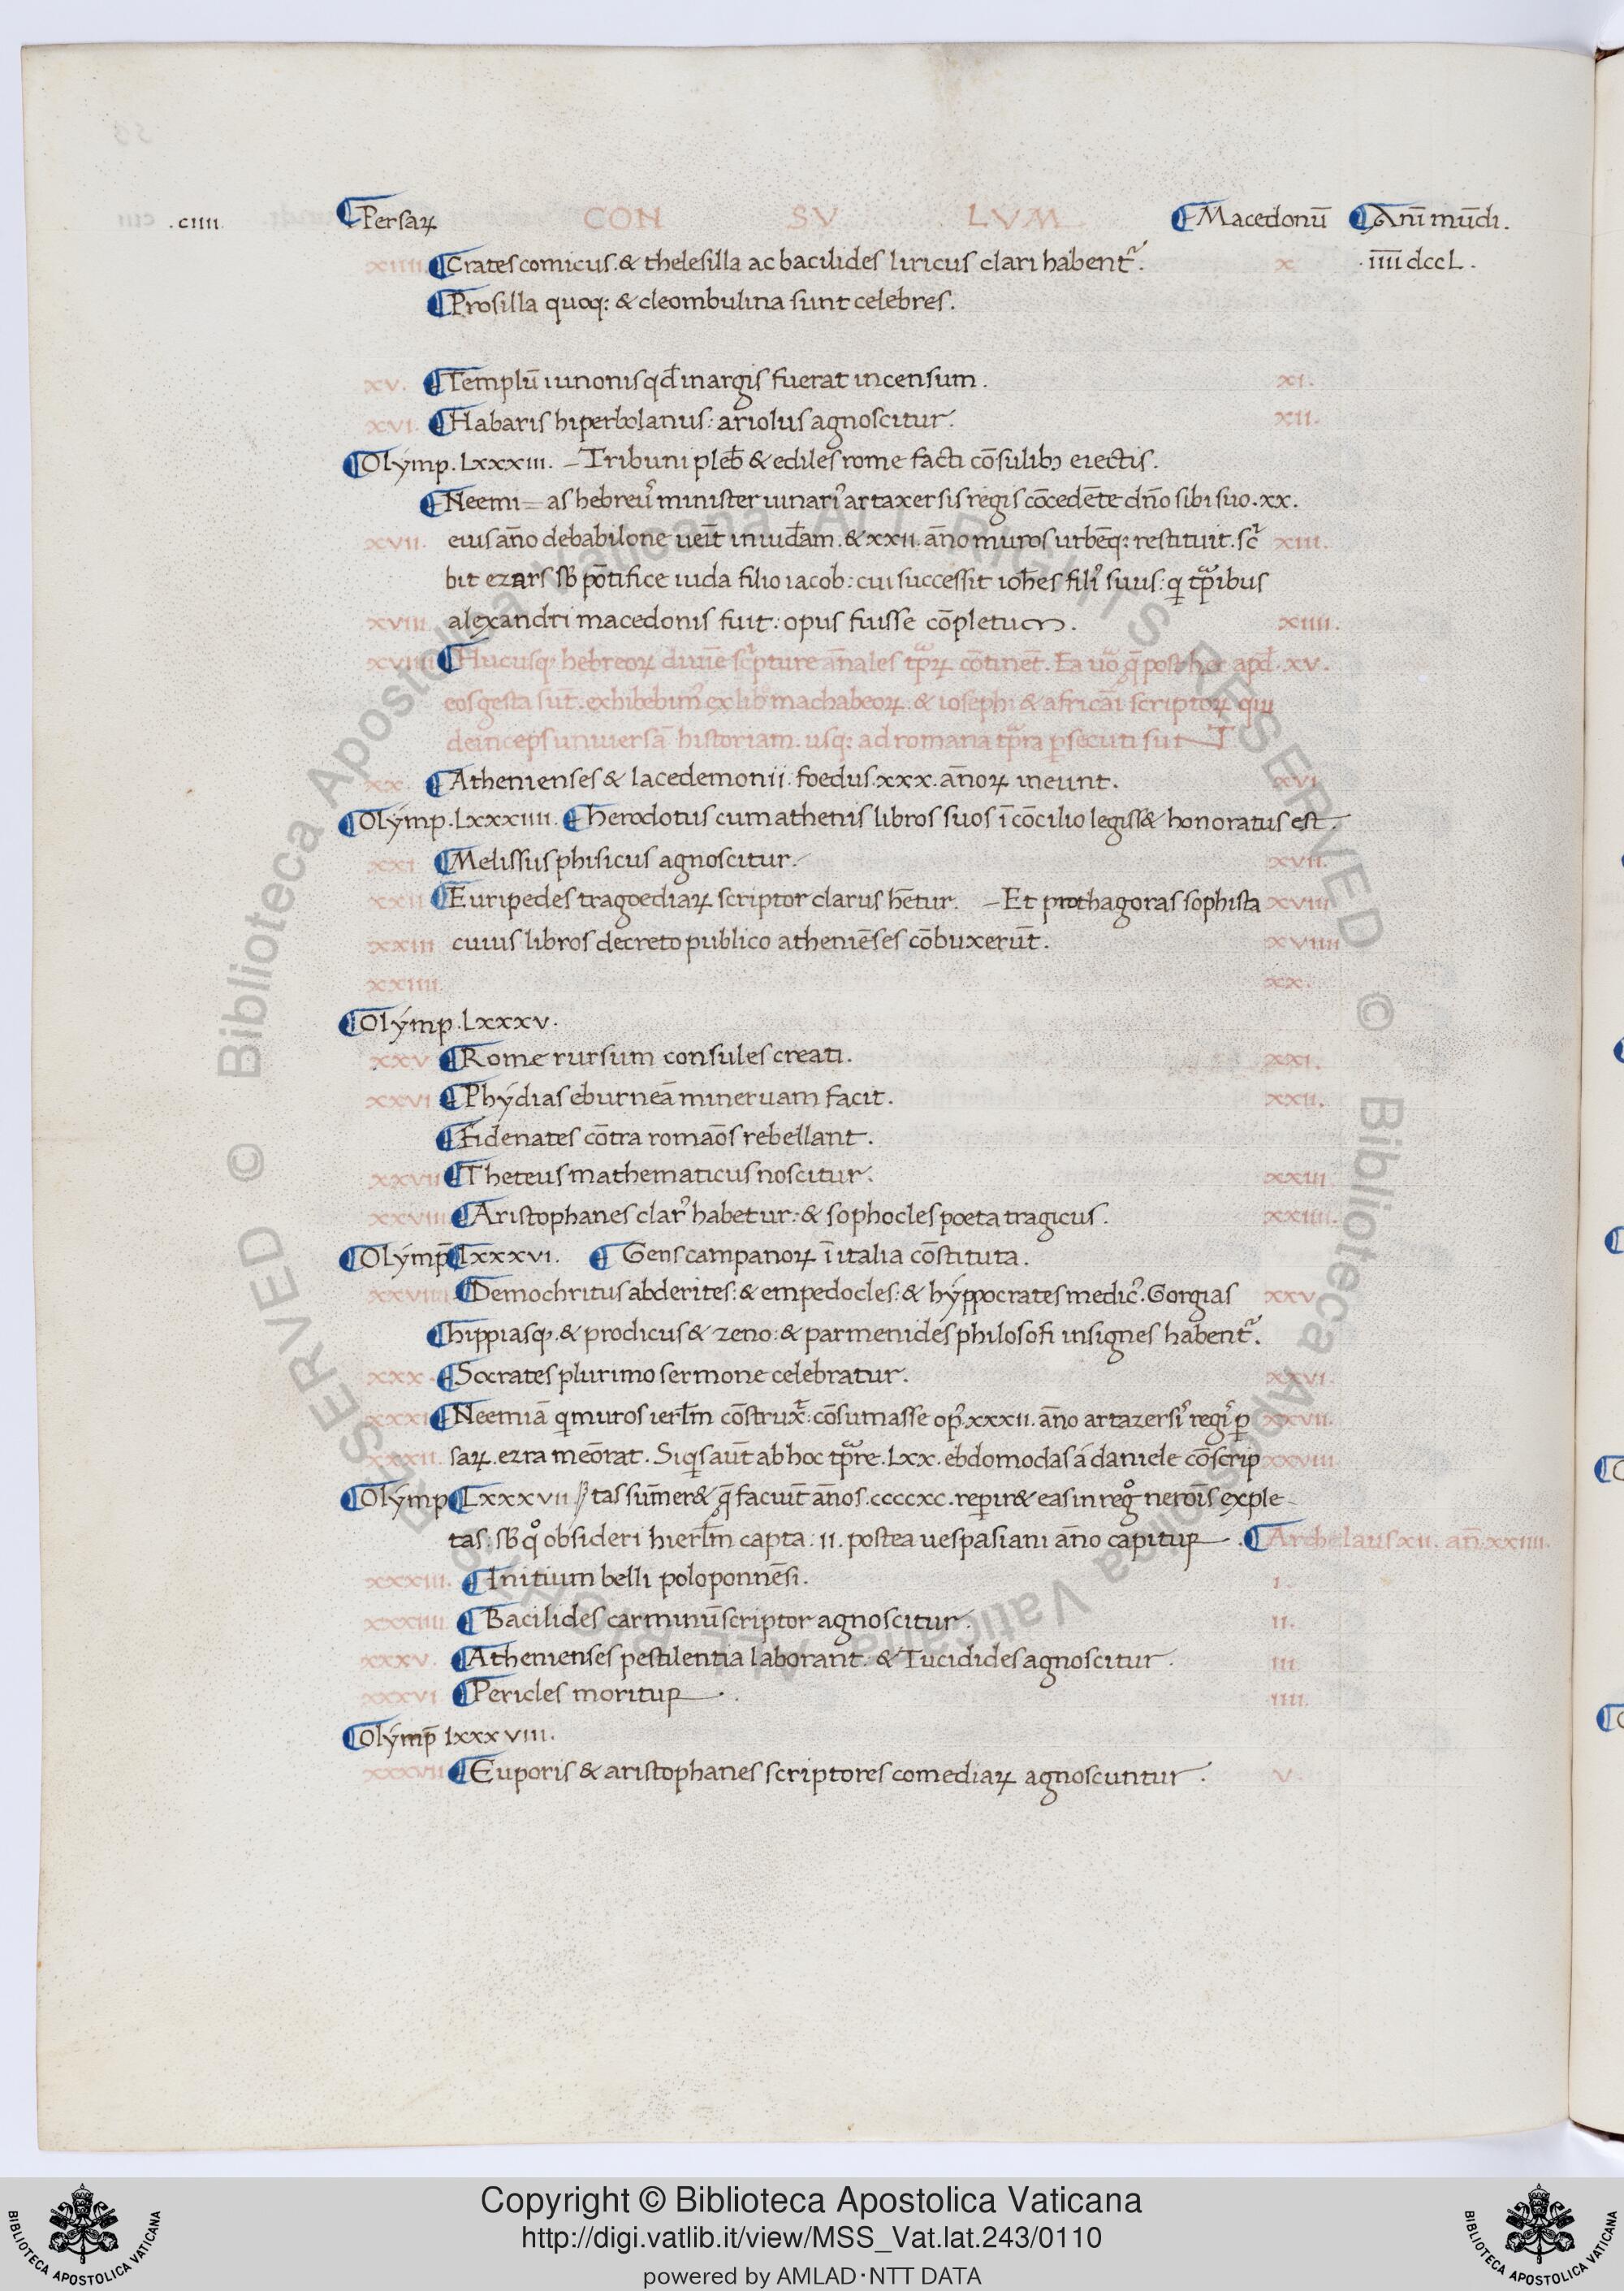 .ciiii. Persaꝝ CON SV LVM Macedonū Anī mūdi.
xiiii. Crates comicus. & thelesilla ac bacilides liricus clari habentᷣ. x ·iiii dccL.
Prosilla quoq: & cleombulina sunt celebres.
xv. Templū iunonis qđ inargis fuerat incensum. xi.
xvi. Habaris hiperbolanus: ariolus agnoscitur. xii.
Olýmp. Lxxxiii. – Tribuni pleƀ & ediles rome facti cōsulibꝫ eiectis.
Neemi= as hebreu᾽ minister uinari᾽ artaxersis regis cōcedēte dn̄o sibi suo. xx.
xvii. eius an̄o debabilone ueīt iniuđam. & xxii. an̄o muros urbēq: restituit. scͥ xiii.
bit ezars sƀ pōtifice iuda filio iacob: cui successit ioħes fili᾽ suus: qͥ tp̄ribus
xviii. alexandri macedonis fuit: opus fuisse cōpletum. xiiii.
xviiii Hucusqꝫ hebreoꝝ diuīe scͥpture an̄ales tp̄ꝝ cōtinēt. Ea uo᷒ q̄ post hoc apđ. xv.
eos gesta sūt. exhibebim᾽ ex lib machabeoꝝ. & iosephi & africāi scriptoꝝ qui
deinceps uniuersā historiam. usq: ad romana tp̄ra ꝑsecuti sunT
xx. Athenienses & lacedemonii. foedus. xxx. an̄oꝝ ineunt. xvi
Olýmp. Lxxxiiii. herodotus cum athenis libros suos ī cōcilio legiss& honoratus est.
xxi Melissus phisicus agnoscitur. xvii.
xxii Euripedes tragoediaꝝ scriptor clarus hētur. – Et prothagoras sophista xviii
xxiii cuius libros decreto publico atheniēses cōbuxerūt. xviiii
xxiiii. xx.
Olýmp. Lxxxv.
xxv Rome rursum consules creati. xxi.
xxvi Phýdias eburneā mineruam facit. xxii.
Fidenates cōtra romāos rebellant.
xxvii Theteus mathematicus noscitur. xxiii
xxviii Aristophanes clar᾽ habetur: & sophocles poeta tragicus. xxiiii.
Olýmp̄ Lxxxvi. Gens campanoꝝ ī italia cōstituta.
xxviiii Demochritus abderites: & empedocles: & hýppocrates medic᾽. Gorgias xxv
hippiasqꝫ. & prodicus & zeno: & parmenides philosofi insignes habentᷣ.
xxx. Socrates plurimo sermone celebratur. xxvi.
xxxi Neemiā qͥ muros ierƚm cōstrux̄: cōsumasse op᾽. xxxii. an̄o artazersi᾽ regi᾽ ꝑ xxvii.
xxxii. saꝝ. ezra meōrat. Siqͥs aut̄ ab hoc tp̄re. Lxx. ebdomodas á daniele cōscrip xxviii
Olýmp Lxxxvii tas sum̄er& q̄ facuit̄ an̄os. ccccxc. reꝑir& eas in regͦ nerōis exple-
tas: sƀ qͦ obsideri hierƚm capta: ii. postea uespasiani an̄o capitur. Archelaus xii. an̄. xxiiii.
xxxiii. Initium belli poloponnēsi. i.
xxxiiii. Bacilides carminū scriptor agnoscitur. ii.
xxxv. Athenienses pestilentia laborant: & Tucidides agnoscitur. iii
xxxvi Pericles moritur. iiii.
Olýmp̄ lxxxviii.
xxxvii Euporis & aristophanes scriptores comediaꝝ agnoscuntur. v.
© Biblioteca Apostolica Vaticana ALL RIGHTS RESERVED © Biblioteca Apostolica Vaticana ALL RIGHTS RESERVED
Copyright © Biblioteca Apostolica Vaticana
http://digi.vatlib.it/view/MSS_Vat.lat.243/0110
powered by AMLAD·NTT DATA
BIBLIOTECA APOSTOLICA VATICANA
BIBLIOTECA APOSTOLICA VATICANA